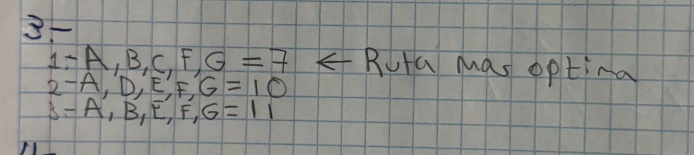 3-
1-A, B, C, F, G = 7 ← Ruta mas optima
2-A, D, E, F, G = 10
3-A, B, E, F, G = 11